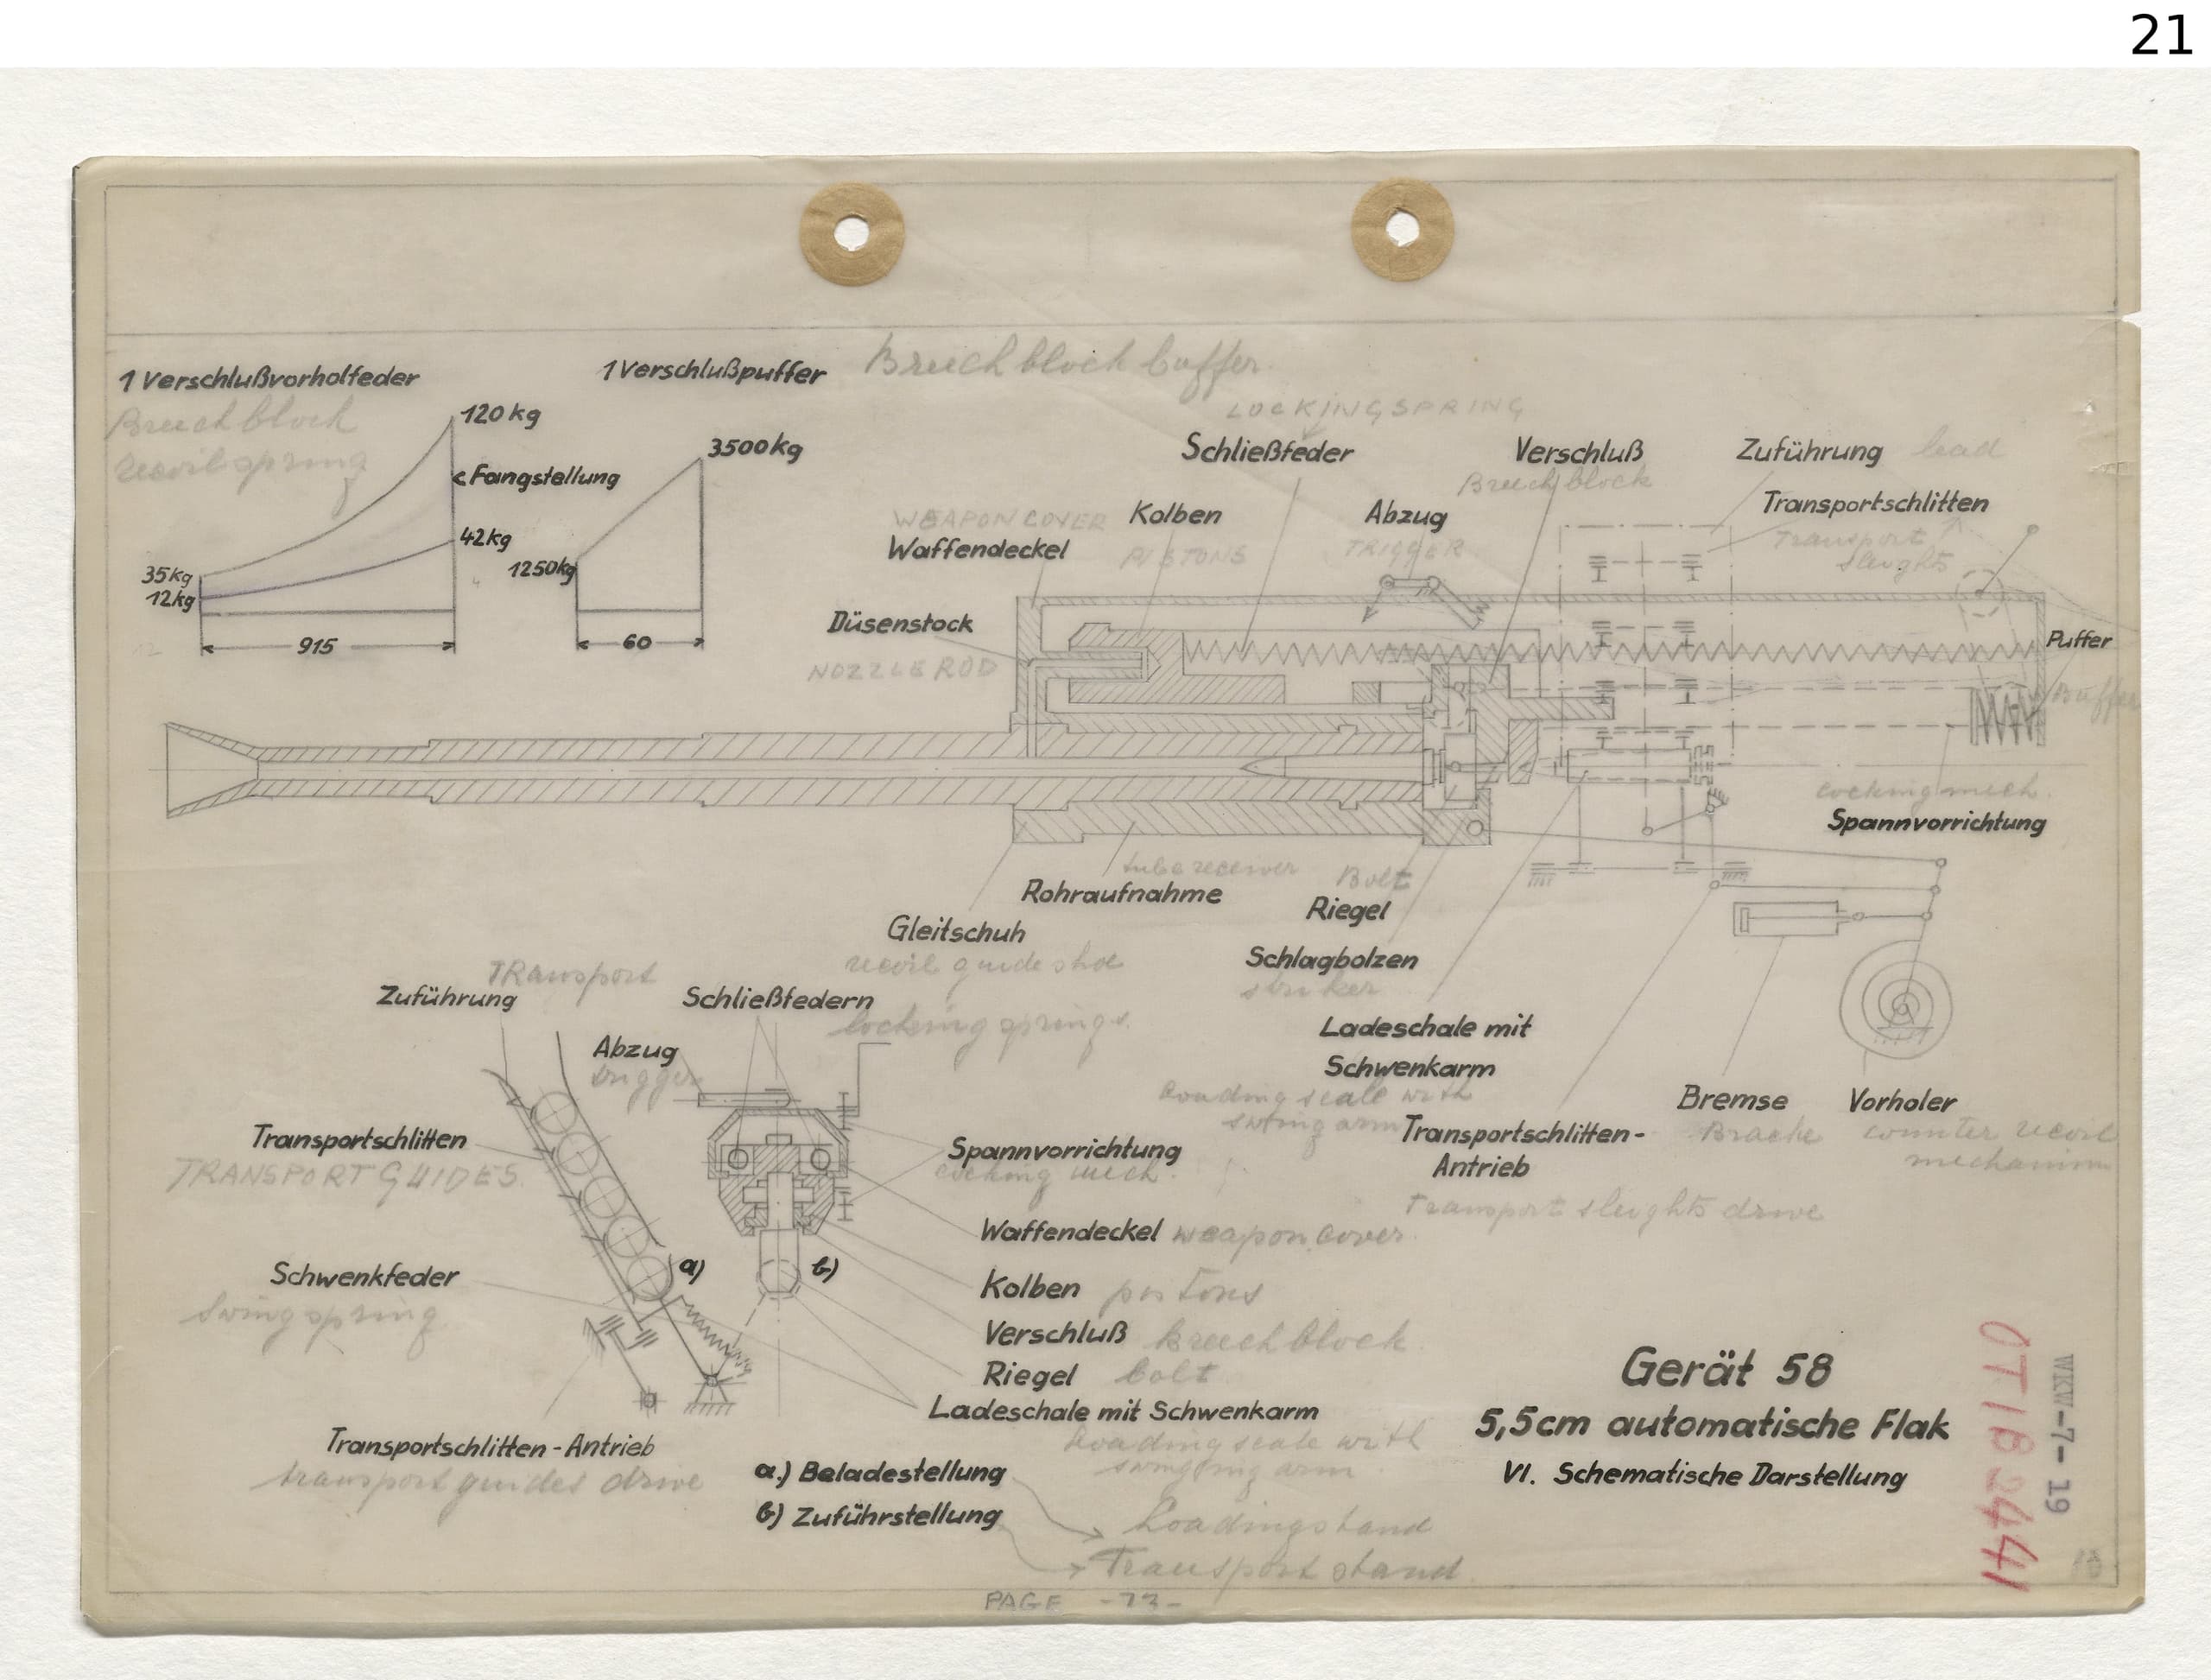 21
1 Verschlußvorholfeder
1 Verschlußpuffer
Breech block buffer.
Breech block
recoil spring
120 kg
<Fangstellung
42 kg
35 kg
12 kg
915
3500 kg
1250 kg
60
LOCKINGSPRING
Schließfeder
Verschluß
Breech block
Zuführung lead
Transportschlitten
Transport
sleights
WEAPON COVER
Waffendeckel
Kolben
PISTONS
Abzug
TRIGGER
Düsenstock
NOZZLE ROD
Puffer
Buffer
cocking mech.
Spannvorrichtung
tube receiver
Rohraufnahme
Bolt
Riegel
Gleitschuh
recoil guide shoe
Schlagbolzen
striker
Ladeschale mit
Schwenkarm
Loading scale with
swing arm
Transportschlitten-
Antrieb
Transport sleights drive
Bremse
Bracke
Vorholer
counter recoil
mechanism
TRansport
Zuführung
Schließfedern
locking springs.
Abzug
trigger
Transportschlitten
TRANSPORT GUIDES.
Spannvorrichtung
cocking mech.
Waffendeckel weapon cover.
Schwenkfeder
Swing spring
a)
b)
Kolben pistons
Verschluß breech block.
Riegel bolt
Ladeschale mit Schwenkarm
Loading scale with
swinging arm.
Transportschlitten-Antrieb
transport guides drive
a.) Beladestellung
b) Zuführstellung
Loadingstand
Transport stand.
Gerät 58
5,5cm automatische Flak
VI. Schematische Darstellung
OTIB 2441
WKW-7-19
13
PAGE -73-